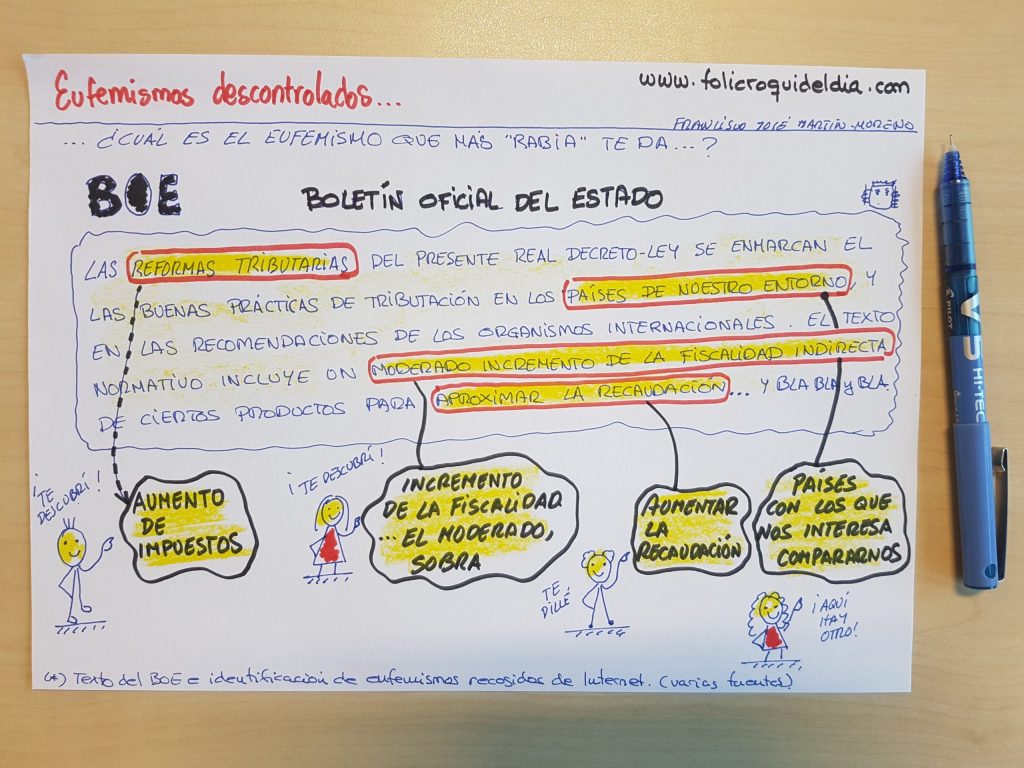 Eufemismos descontrolados...
www.folicroquideldia.com
FRANCISCO JOSÉ MARTÍN-MORENO
... ¿CUÁL ES EL EUFEMISMO QUE MÁS "RABIA" TE DA...?
BOE
BOLETÍN OFICIAL DEL ESTADO
LAS REFORMAS TRIBUTARIAS DEL PRESENTE REAL DECRETO-LEY SE ENMARCAN EL
LAS BUENAS PRÁCTICAS DE TRIBUTACIÓN EN LOS PAÍSES DE NUESTRO ENTORNO, Y
EN LAS RECOMENDACIONES DE LOS ORGANISMOS INTERNACIONALES. EL TEXTO
NORMATIVO INCLUYE UN MODERADO INCREMENTO DE LA FISCALIDAD INDIRECTA
DE CIERTOS PRODUCTOS PARA APROXIMAR LA RECAUDACIÓN... Y BLA BLA y BLA.
¡TE
DESCUBRÍ!
AUMENTO
DE
IMPUESTOS
¡TE DESCUBRÍ!
INCREMENTO
DE LA FISCALIDAD
... EL MODERADO,
SOBRA
TE
PILLÉ
AUMENTAR
LA
RECAUDACIÓN
PAÍSES
CON LOS QUE
NOS INTERESA
COMPARARNOS
¡AQUÍ
HAY
OTRO!
(*) Texto del BOE e identificación de eufemismos recogidos de Internet. (varias fuentes)
PILOT
V5
HI-TEC